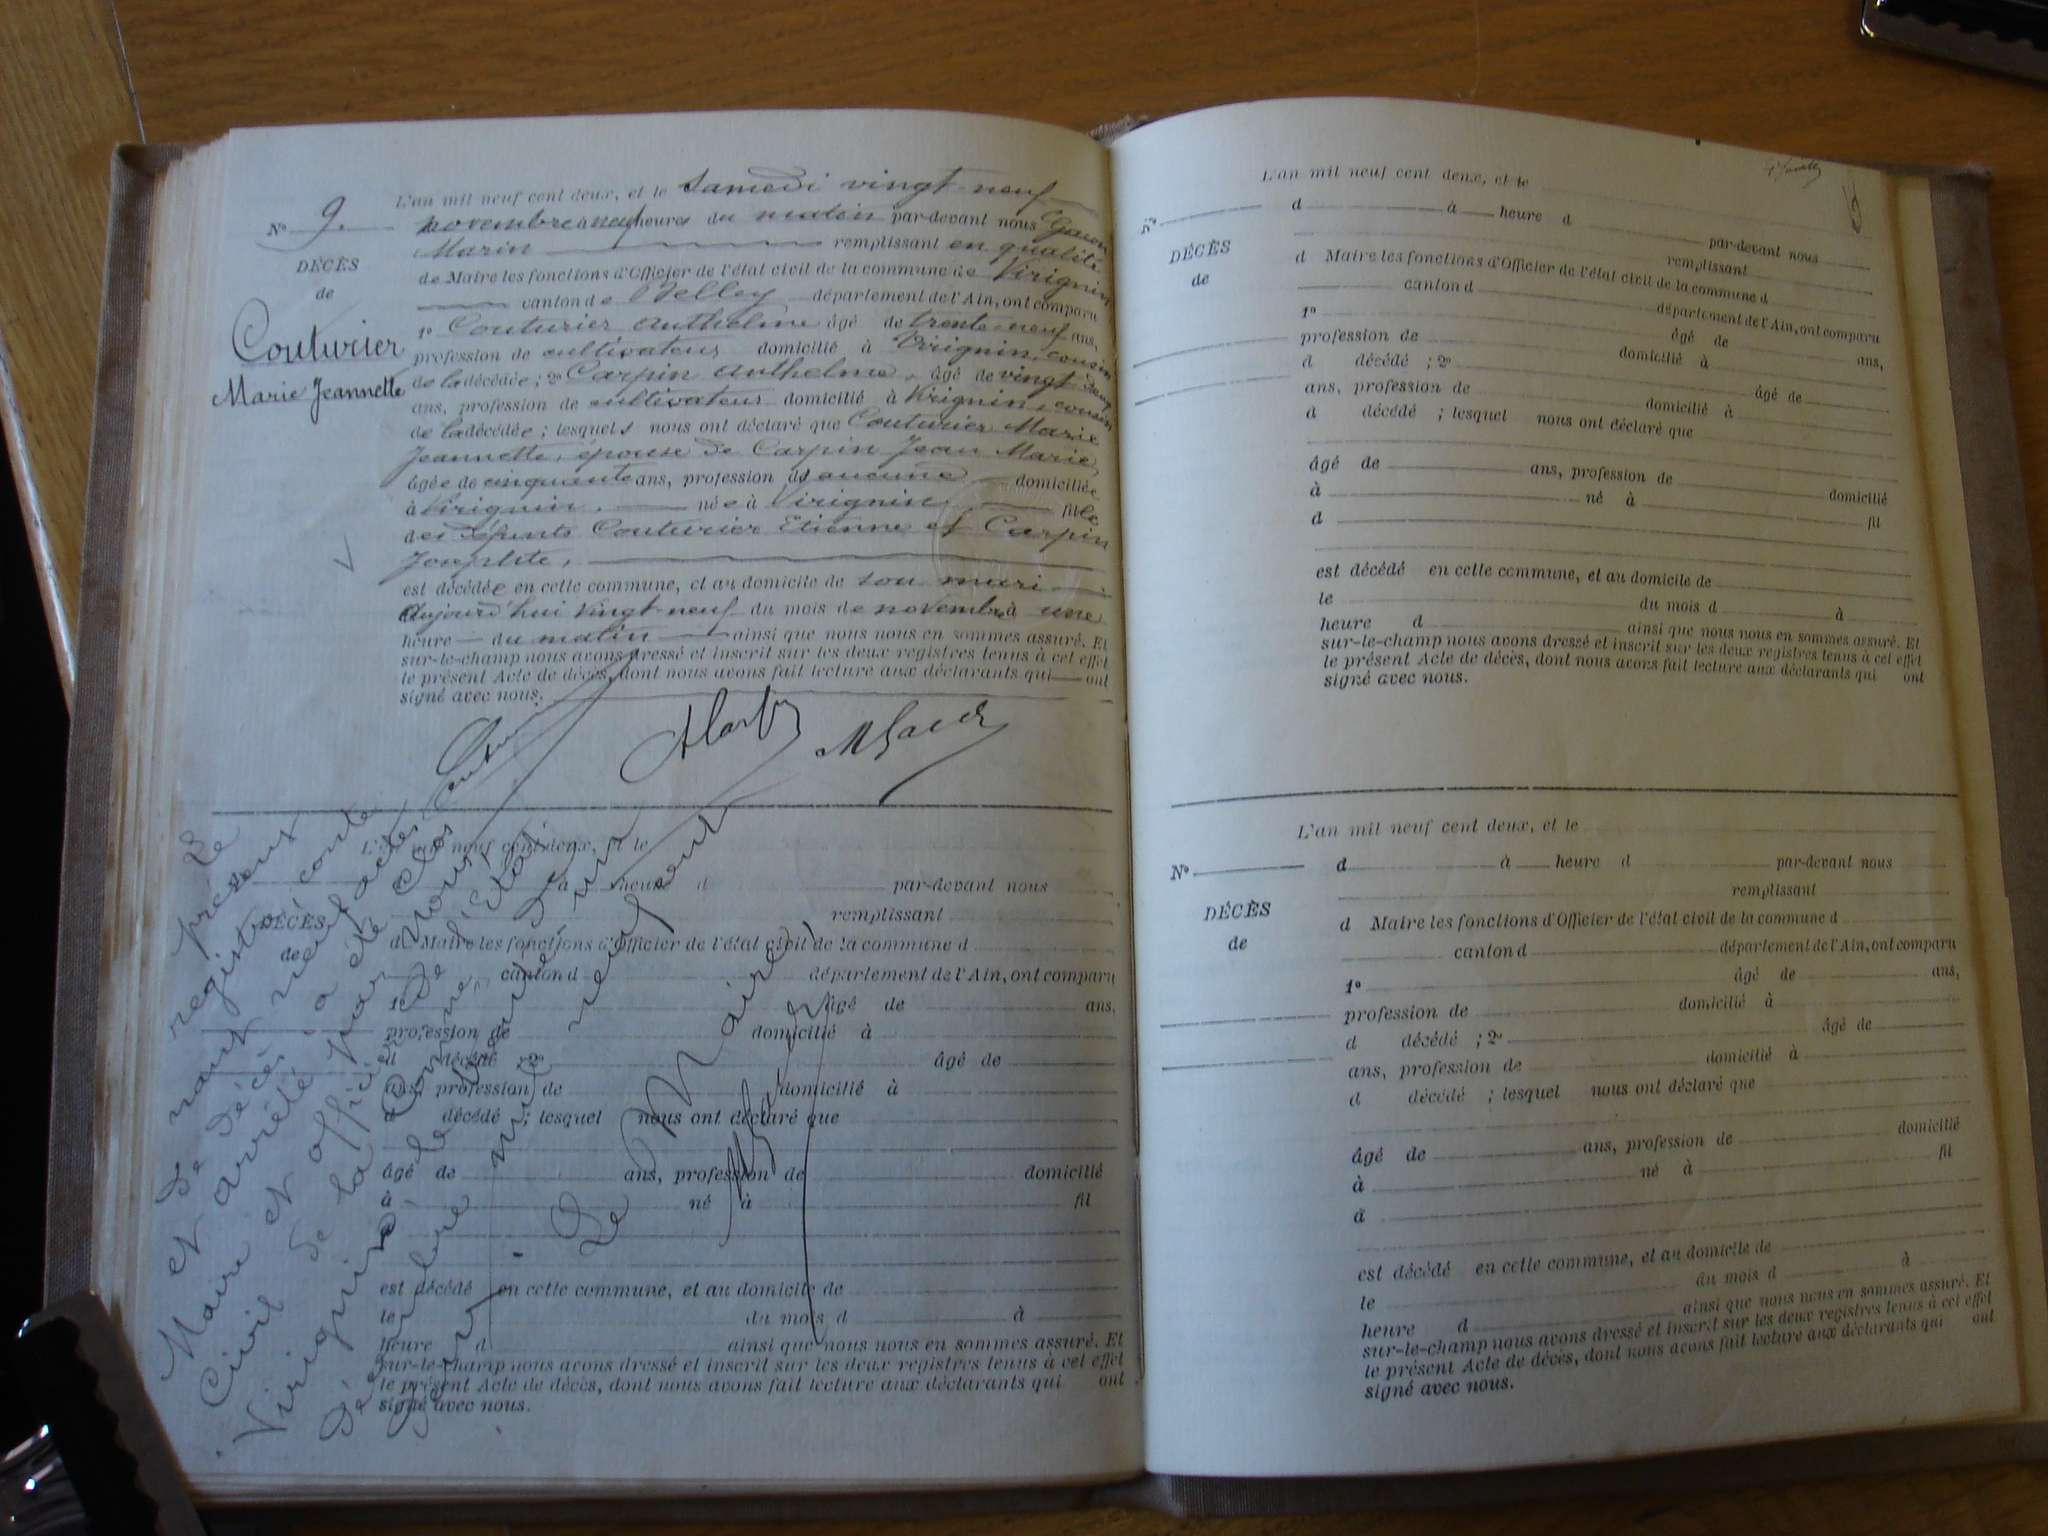 L'an mil neuf cent deux, et le samedi vingt-neuf
N° 9. novembre à neuf heures du matin par-devant nous Gacon
Marin remplissant en qualité
DÉCÈS
de Maire les fonctions d'Officier de l'état civil de la commune de Virignin
de
canton de Belley département de l'Ain, ont comparu
1° Couturier Anthelme âgé de trente-neuf ans,
Couturier
profession de cultivateur domicilié à Virignin, cousin
de la décédée ; 2° Carpin Anthelme, âgé de vingt-
Marie Jeannette
ans, profession de cultivateur domicilié à Virignin, cousin
de la décédée ; lesquels nous ont déclaré que Couturier Marie
Jeannette, épouse de Carpin Jean Marie,
âgée de cinquante ans, profession d aucune domiciliée
à Virignin. née à Virignin fille
des défunts Couturier Etienne et Carpin
est décédée en cette commune, et au domicile de son mari
aujourd'hui vingt-neuf du mois de novembre à une
heure du matin ainsi que nous nous en sommes assuré. Et
sur-le-champ nous avons dressé et inscrit sur les deux registres tenus à cet effet
le présent Acte de décès, dont nous avons fait lecture aux déclarants qui ont
signé avec nous.
Le
présent
registre conte
nant neuf actes
de décès a été clos
et arrêté par nous,
Maire et officier de l'état
Civil de la Commune de
Virignin, le trente un
décembre mil neuf cent
deux.
Le Maire,
L'an mil neuf cent deux, et le
à heure d par-devant nous
remplissant
DÉCÈS
d Maire les fonctions d'Officier de l'état civil de la commune d
de
canton d département de l'Ain, ont comparu
1° âgé de ans,
profession de domicilié à
d décédé ; 2° âgé de
ans, profession de domicilié à
d décédé ; lesquel nous ont déclaré que
âgé de ans, profession de domicilié
à né à fil
est décédé en cette commune, et au domicile de
le du mois d à
heure d ainsi que nous nous en sommes assuré. Et
sur-le-champ nous avons dressé et inscrit sur les deux registres tenus à cet effet
le présent Acte de décès, dont nous avons fait lecture aux déclarants qui ont
signé avec nous.
L'an mil neuf cent deux, et le
N° d à heure d par-devant nous
remplissant
DÉCÈS
d Maire les fonctions d'Officier de l'état civil de la commune d
de
canton d département de l'Ain, ont comparu
1° âgé de ans,
profession de domicilié à
d décédé ; 2° âgé de
ans, profession de domicilié à
d décédé ; lesquel nous ont déclaré que
âgé de ans, profession de domicilié
à né à fil
d
est décédé en cette commune, et au domicile de
le du mois d à
heure d ainsi que nous nous en sommes assuré. Et
sur-le-champ nous avons dressé et inscrit sur les deux registres tenus à cet effet
le présent Acte de décès, dont nous avons fait lecture aux déclarants qui ont
signé avec nous.
L'an mil neuf cent deux, et le
N° d à heure d par-devant nous
remplissant
DÉCÈS
d Maire les fonctions d'Officier de l'état civil de la commune d
de
canton d département de l'Ain, ont comparu
1° âgé de ans,
profession de domicilié à
d décédé ; 2° âgé de
ans, profession de domicilié à
d décédé ; lesquel nous ont déclaré que
âgé de ans, profession de domicilié
à né à fil
d
est décédé en cette commune, et au domicile de
le du mois d à
heure d ainsi que nous nous en sommes assuré. Et
sur-le-champ nous avons dressé et inscrit sur les deux registres tenus à cet effet
le présent Acte de décès, dont nous avons fait lecture aux déclarants qui ont
signé avec nous.